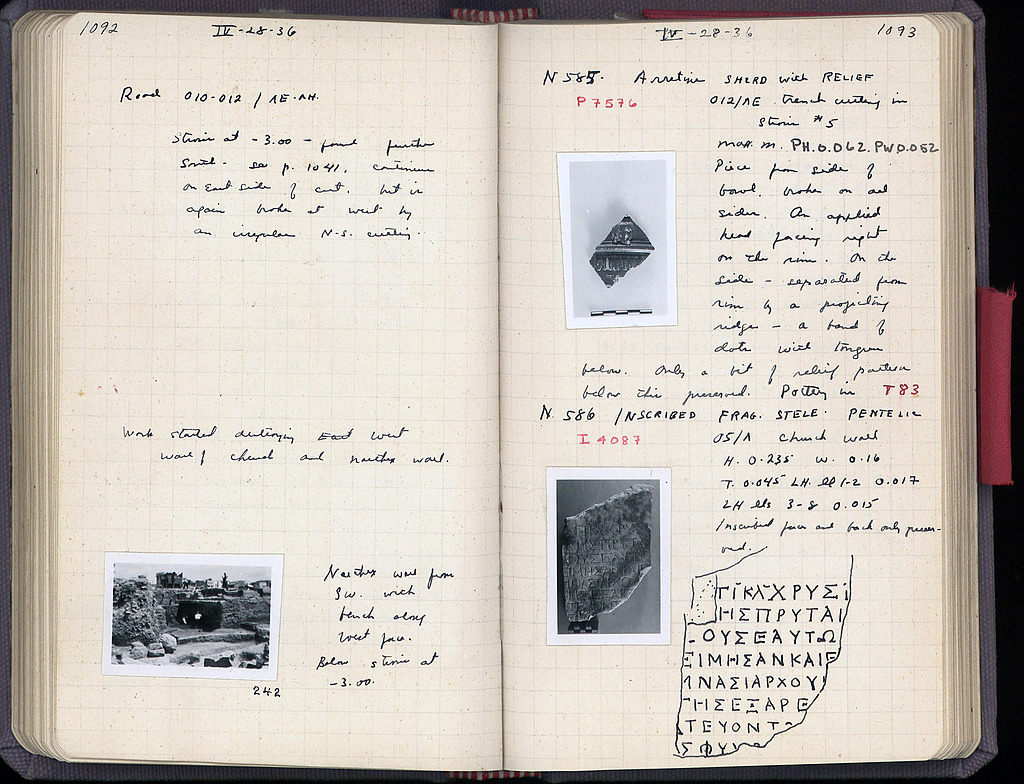 1092
IV-28-36
Road 010-012 / ΛΕ-ΛΗ.
Strosis at -3.00 - found further
South - see p. 1041. continues
on East side of cut. but is
again broken at west by
an irregular N-S. cutting.
Work started destroying East west
wall of church and narthex wall.
Narthex wall from
SW. with
bench along
West face.
Below strosis at
-3.00.
242
IV-28-36
1093
N 585. Arretine SHERD with RELIEF
P 7576
012/ΛΕ trench cutting in
Strosis #5
max. m. PH.0.062. PW.0.052
Piece from side of
bowl. broken on all
sides. An applied
head facing right
on the rim. On the
side - separated from
rim by a projecting
ridge - a band of
dots with tongues
below. Only a bit of relief pattern
below this preserved. Pottery in T83
N 586 INSCRIBED FRAG. STELE. PENTELIC
I 4087
05/Λ Church wall
H. 0.235 W. 0.16
T. 0.045 LH. ll 1-2 0.017
LH lls 3-8 0.015
Inscribed face and back only preser-
ved.
ΓΙ ΚΛ ΧΡΥΣΙ
ΗΣΠΡΥΤΑΙ
ΟΥΣΕΑΥΤΩ
ΕΙΜΗΣΑΝΚΑΙΕ
ΝΑΣΙΑΡΧΟΥ
ΗΣΕΞΑΡΕ
ΤΕΥΟΝΤ
ΣΦΥ